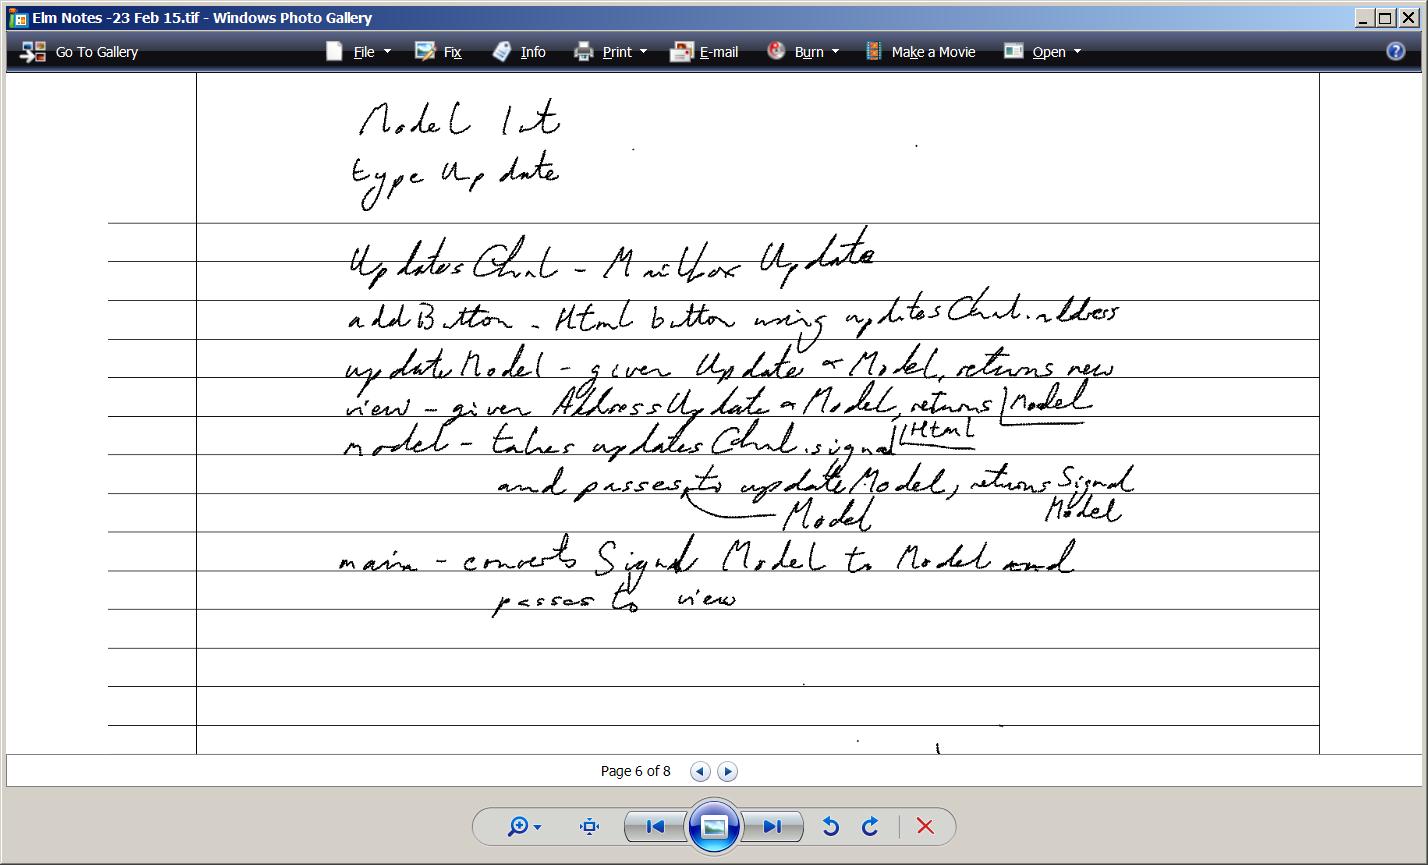 Elm Notes -23 Feb 15.tif - Windows Photo Gallery
Go To Gallery File Fix Info Print E-mail Burn Make a Movie Open
Model Int
type Update
UpdatesChnl - Mailbox Update
addButton - Html button using updatesChnl.address
updateModel - given Update & Model, returns new
view - given Address Update & Model, returns Model
model - takes updatesChnl.signal Html
and passes to updateModel, returns Signal
Model Model
main - converts Signal Model to Model and
passes to view
Page 6 of 8